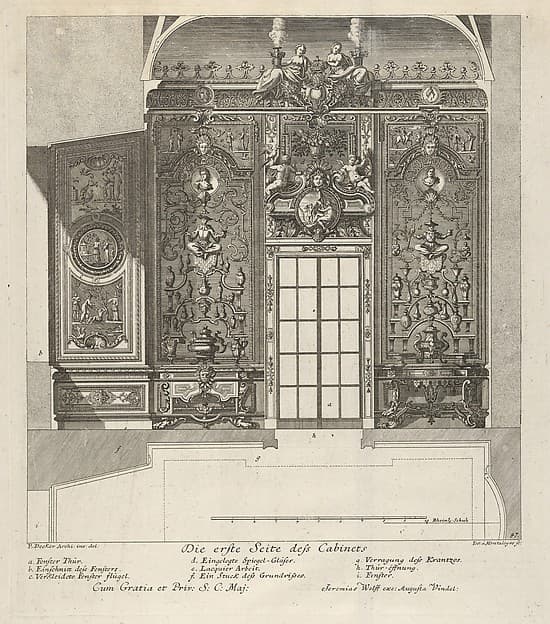 a
b
f
g
h
i
i
9 Rheinlï Schuh
97.
P. Decker Archi: inv: del.
Die erste Seite deß Cabinets
a. Fenster Thür.
b. Einschnitt deß Fensters.
c. Verkleidete Fenster flügel.
d. Eingelegte Spiegel-Gläser.
e. Lacquier Arbeit.
f. Ein Stuck deß Grundrißes.
g. Verragung deß Krantzes.
h. Thür-öffnung.
i. Fenster.
Cum Gratia et Priv: S. C. Maj:
Jeremias Wolff exc: Augusta Vindel: